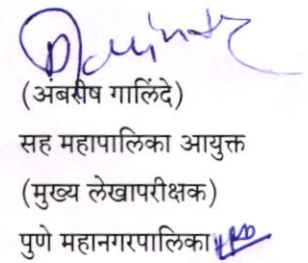 (अंबरीष गालिंदे)
सह महापालिका आयुक्त
(मुख्य लेखापरीक्षक)
पुणे महानगरपालिका